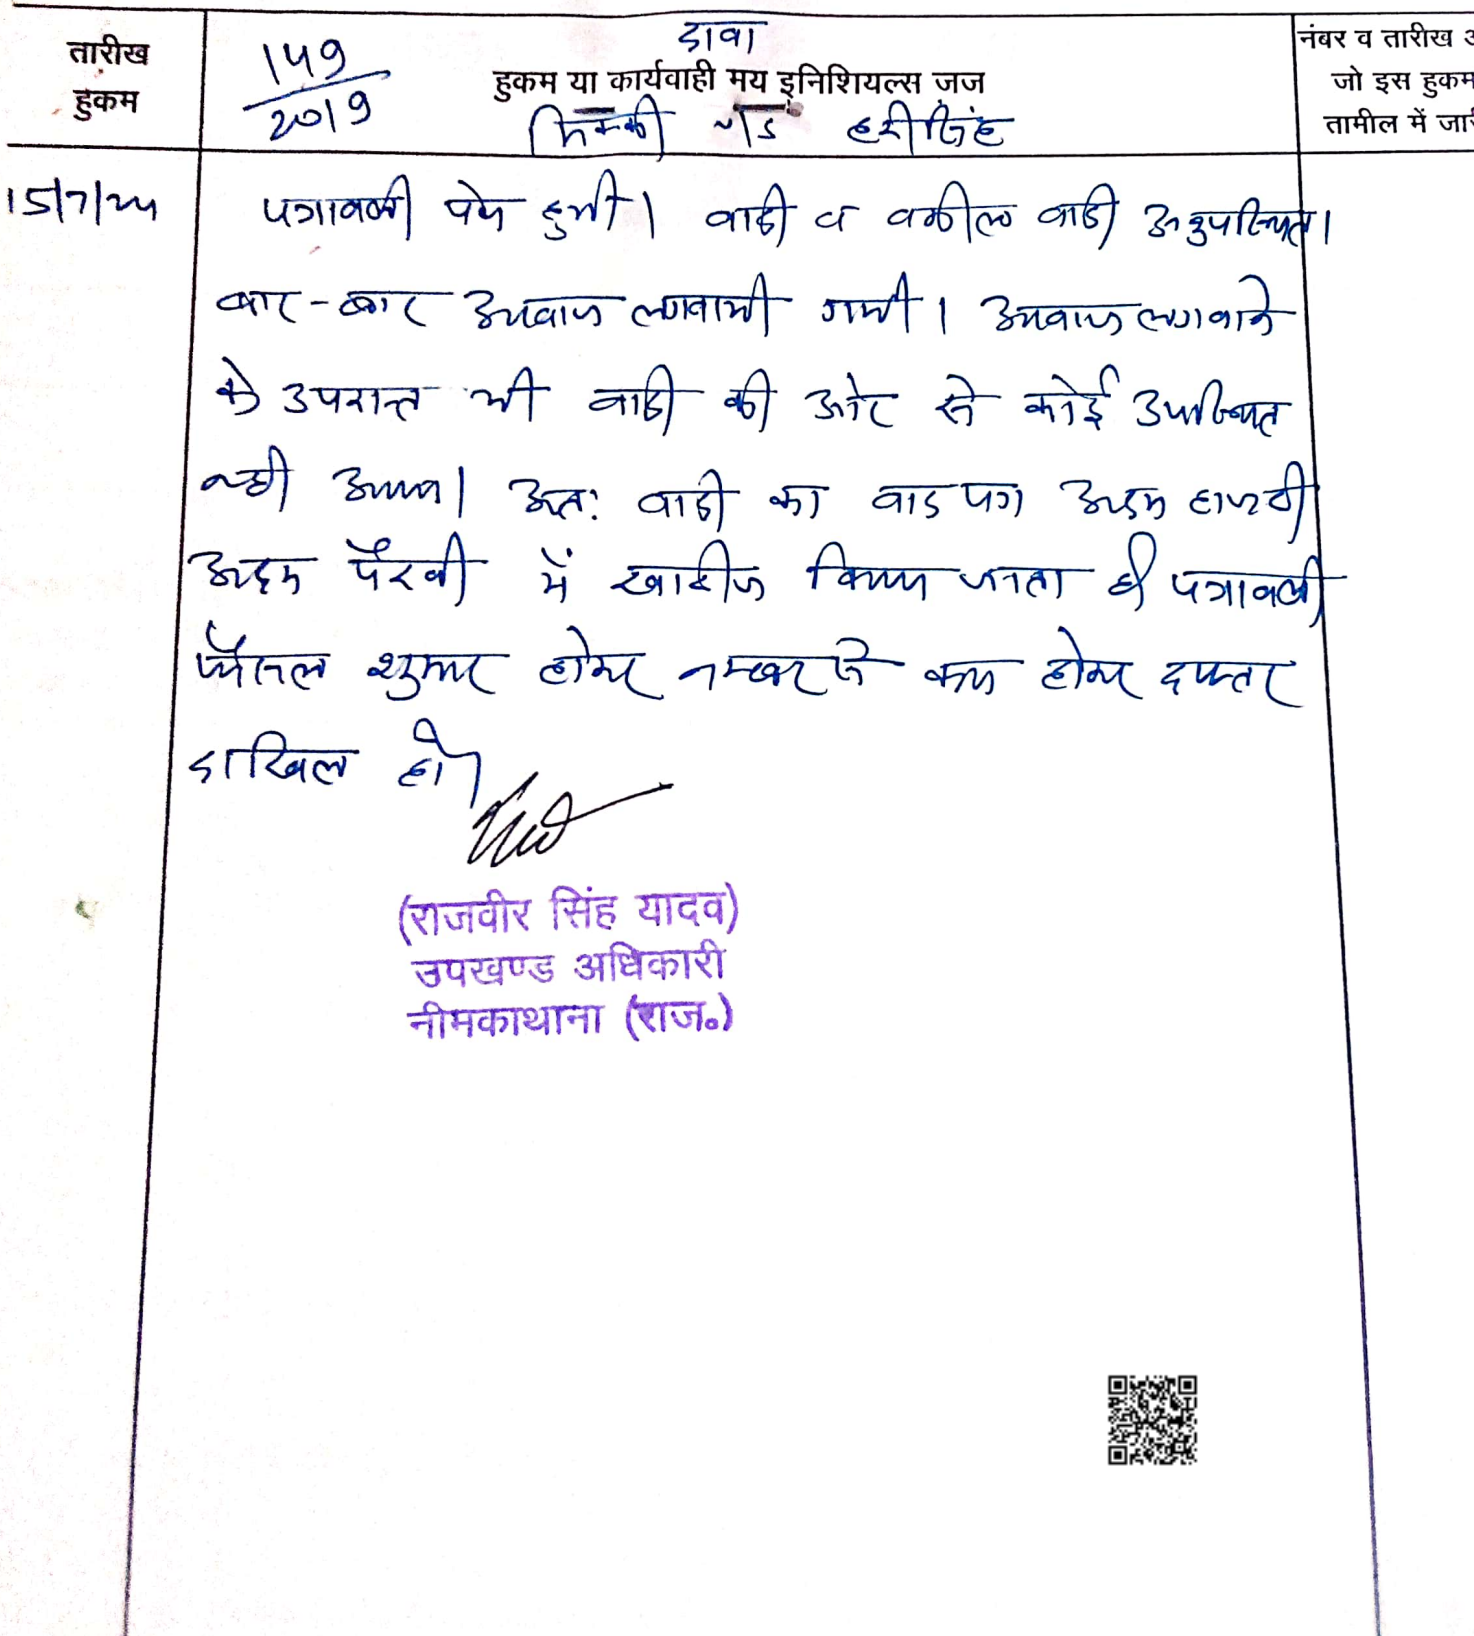 दावा
तारीख
हुकम
149
2019
हुकम या कार्यवाही मय इनिशियल्स जज
नंबर व तारीख
जो इस हुकम
तामील में जारी
हरीसिंह
15/7/24
पत्रावली पेश हुयी। वादी व वकील वादी अनुपस्थित।
बार-बार आवाज लगवायी गयी। आवाज लगवाने
के उपरान्त भी वादी की ओर से कोई उपस्थित
नहीं आया। अतः वादी का वाद पत्र अदम हाजरी
अदम पैरवी में खारीज किया जाता है। पत्रावली
फैसल शुमार होकर नम्बर से कम होकर दफ्तर
दाखिल हो।
(राजवीर सिंह यादव)
उपखण्ड अधिकारी
नीमकाथाना (राज॰)